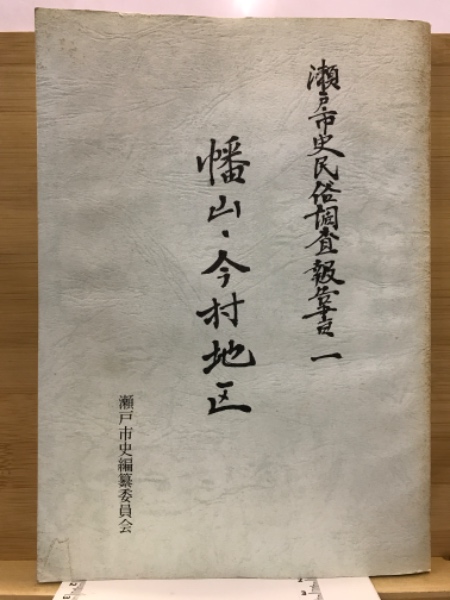 瀬戸市史民俗調査報告書一
幡山・今村地区
瀬戸市史編纂委員会